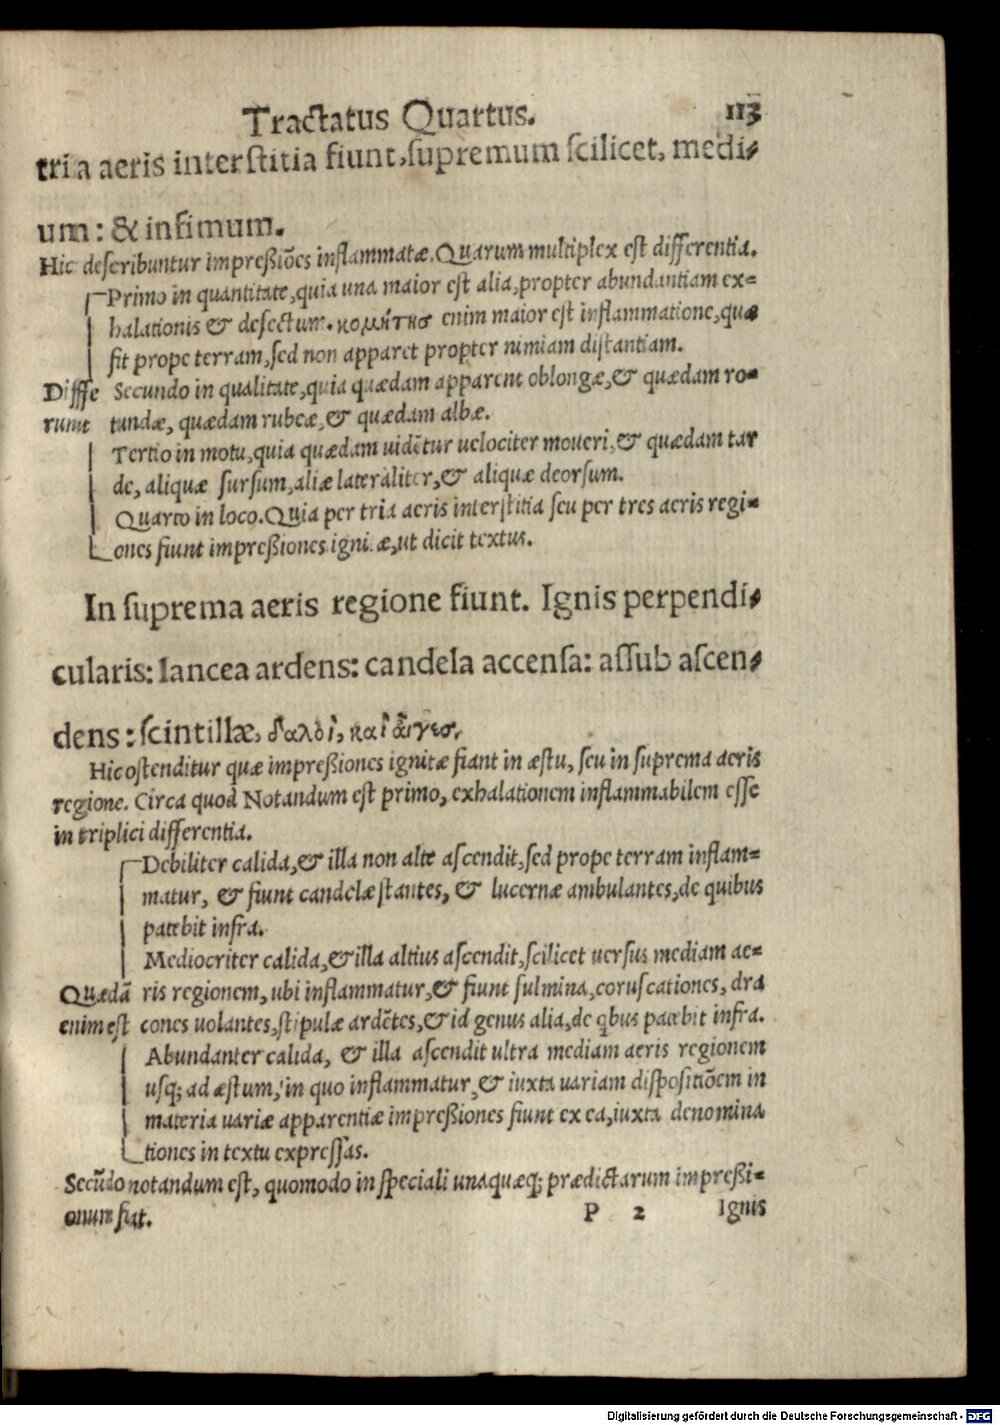 Tractatus Quartus. 113
tria aeris interſtitia fiunt, ſupremum ſcilicet, medi-
um: & infimum.
Hic deſcribuntur impreßiões inflammatæ. Quarum multiplex eſt differentia.
Primo in quantitate, quia una maior eſt alia, propter abundantiam ex=
halationis & defectum. κομήτησ enim maior eſt inflammatione, quæ
fit prope terram, ſed non apparet propter nimiam diſtantiam.
Diffe Secundo in qualitate, quia quædam apparent oblongæ, & quædam ro=
runt tundæ, quædam rubeæ, & quædam albæ.
Tertio in motu, quia quædam uidẽtur uelociter moueri, & quædam tar
de, aliquæ ſurſum, aliæ lateraliter, & aliquæ deorſum.
Quarto in loco. Quia per tria aeris interſtitia ſeu per tres aeris regi=
ones fiunt impreßiones igni æ, ut dicit textus.
In ſuprema aeris regione fiunt. Ignis perpendi-
cularis: lancea ardens: candela accenſa: aſſub aſcen-
dens: ſcintillæ, δαλοὶ, καὶ ἆιγεσ.
Hic oſtenditur quæ impreßiones ignitæ fiant in æſtu, ſeu in ſuprema aeris
regione. Circa quod Notandum eſt primo, exhalationem inflammabilem eſſe
in triplici differentia.
Debiliter calida, & illa non alte aſcendit, ſed prope terram inflam=
matur, & fiunt candelæ ſtantes, & lucernæ ambulantes, de quibus
patebit infra.
Mediocriter calida, & illa altius aſcendit, ſcilicet uerſus mediam ae=
Quædã ris regionem, ubi inflammatur, & fiunt fulmina, coruſcationes, dra
enim eſt cones uolantes, ſtipulæ ardẽtes, & id genus alia, de qͥbus patebit infra.
Abundanter calida, & illa aſcendit ultra mediam aeris regionem
uſq; ad æſtum, in quo inflammatur, & iuxta uariam diſpoſitiõem in
materia uariæ apparentiæ impreßiones fiunt ex ea, iuxta denomina
tiones in textu expreſſas.
Secũdo notandum eſt, quomodo in ſpeciali unaquæq; prædictarum impreßi=
onum fiat. P 2 Ignis
Digitalisierung gefördert durch die Deutsche Forschungsgemeinschaft - DFG